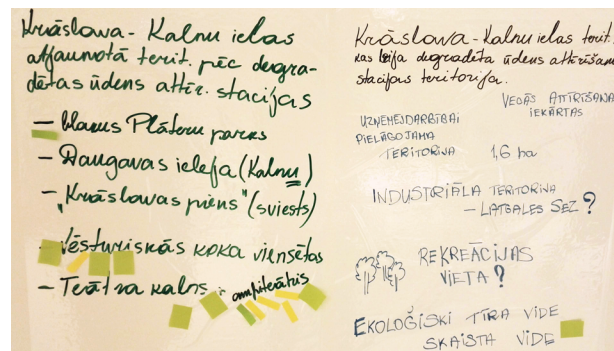 Krāslava - Kalnu ielas
atjaunotā terit. pēc degra-
dētas ūdens attīr. stacijas
- blakus Plāteru parks
- Daugavas ieleja (Kalnu)
- "Krāslavas piens" (sviests)
- Vēsturiskās koka viensētas
- Teātra kalns - amfiteātris
Krāslava - Kalnu ielas terit.
kas bija degradēta ūdens attīrīšanas
stacijas teritorija.
VECĀS ATTĪRĪŠANA
IEKĀRTAS
UZŅĒMĒJDARBĪBAI
PIELĀGOJAMA
TERITORIJA 1,6 ha
INDUSTRIĀLA TERITORIJA
- LATGALES SEZ?
REKREĀCIJAS
VIETA?
EKOLOĢISKI TĪRA VIDE
SKAISTA VIDE